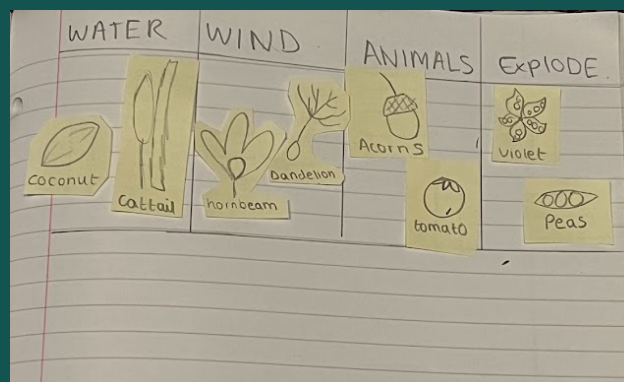 WATER
WIND
ANIMALS
EXPLODE
coconut
Cattail
hornbeam
Dandelion
Acorns
tomato
violet
Peas